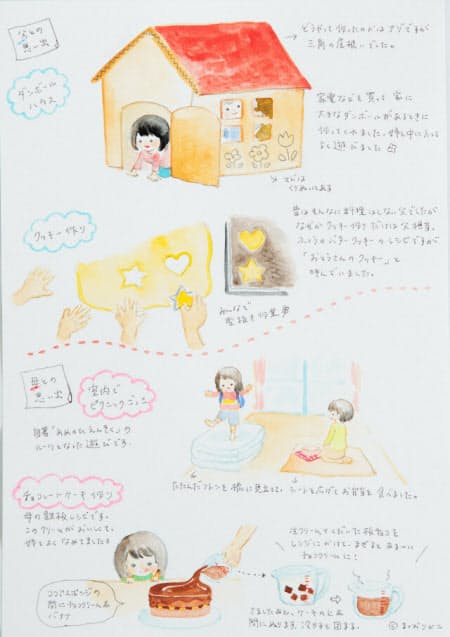 父との
思い出
ダンボール
ハウス
→どうやって作ったのかはナゾですが
三角の屋根いでした。
家電などを買って家に
大きなダンボールがあるときに
作ってくれました。姉と中に入って
よく遊びました
クッキー作り
昔はそんなに料理はしない父でしたが
なぜかクッキー作りだけは父担当。
ふつうのバタークッキーのレシピですが
「おとうさんのクッキー」と
呼んでいました。
みんなで
型抜き作業
母との
思い出
室内で
ピクニックごっこ
自著「あめのひえんそく」の
ルーツとなった遊びです。
たたんだフトンを橋に見立てて、
シートを広げてお弁当を食べました。
チョコレートケーキ作り
母の鉄板レシピです。
このクリームがおいしくて、
姉とよくなめてました
ココアスポンジの
間にチョコクリーム&
バナナ
生クリームとくだいた板チョコを
レンジにかけて、まぜるとあまーい
チョコクリームに!
さましたあと、ケーキの上&
間にぬります。冷やすと固まる。